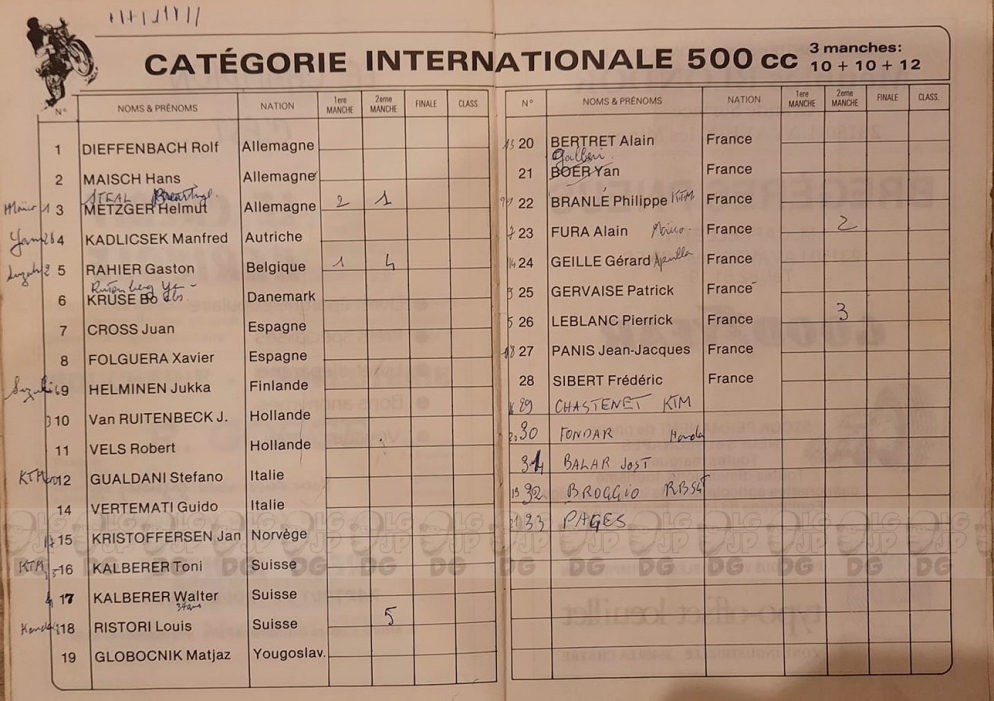 CATÉGORIE INTERNATIONALE 500 cc 3 manches: 10 + 10 + 12
N° NOMS & PRÉNOMS NATION 1ere MANCHE 2eme MANCHE FINALE CLASS.
1 DIEFFENBACH Rolf Allemagne
2 MAISCH Hans Allemagne
STEAL
3 METZGER Helmut Allemagne 2 1
4 KADLICSEK Manfred Autriche
5 RAHIER Gaston Belgique 1 4
6 KRUSE Bo Danemark
7 CROSS Juan Espagne
8 FOLGUERA Xavier Espagne
Suzuki 9 HELMINEN Jukka Finlande
10 Van RUITENBECK J. Hollande
11 VELS Robert Hollande
KTM 12 GUALDANI Stefano Italie
14 VERTEMATI Guido Italie
15 KRISTOFFERSEN Jan Norvège
KTM 16 KALBERER Toni Suisse
17 KALBERER Walter Suisse
37ans
18 RISTORI Louis Suisse 5
19 GLOBOCNIK Matjaz Yougoslav.
N° NOMS & PRÉNOMS NATION 1ere MANCHE 2eme MANCHE FINALE CLASS.
20 BERTRET Alain France
21 BOER Yan France
22 BRANLÉ Philippe KTM France
23 FURA Alain Maico France 2
24 GEILLE Gérard France
25 GERVAISE Patrick France
26 LEBLANC Pierrick France 3
27 PANIS Jean-Jacques France
28 SIBERT Frédéric France
29 CHASTENET KTM
30 FONDAR Honda
31 BALAR JOST
32 BROGGIO
33 PAGES